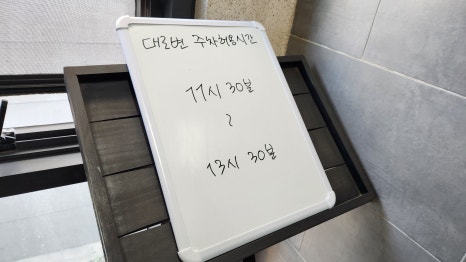 대로변 주차허용시간
11시 30분
~
13시 30분